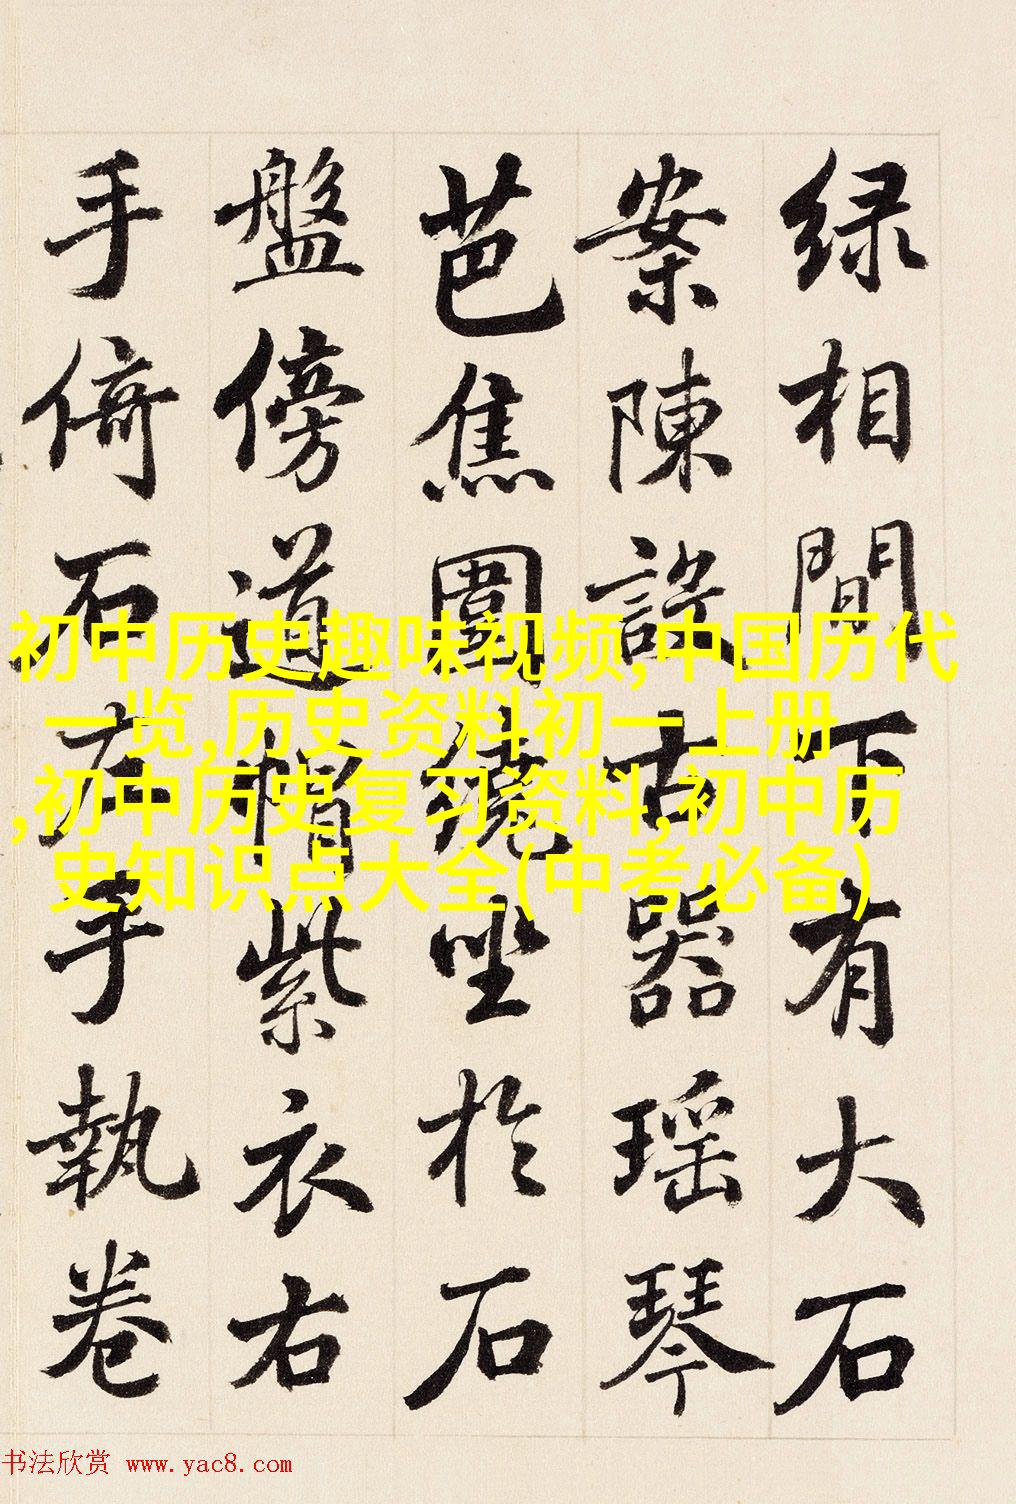 绿相間下有大石
案陳設古器瑶琴
芭焦圍繞坐於石
盤傍道帽紫衣右
手倚石左手執卷
初中历史趣味视频,中国历代
一览,历史资料初一上册
,初中历史复习资料,初中历
史知识点大全(中考必备)
书法欣赏 www.yac8.com